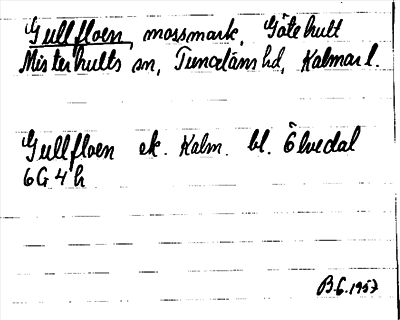 Gullfloen, mossmark, Götehult
Misterhults sn, Tunaläns hd, Kalmar l.
Gullfloen ek. Kalm. bl. Ölvedal
6G4h
B.G. 1957